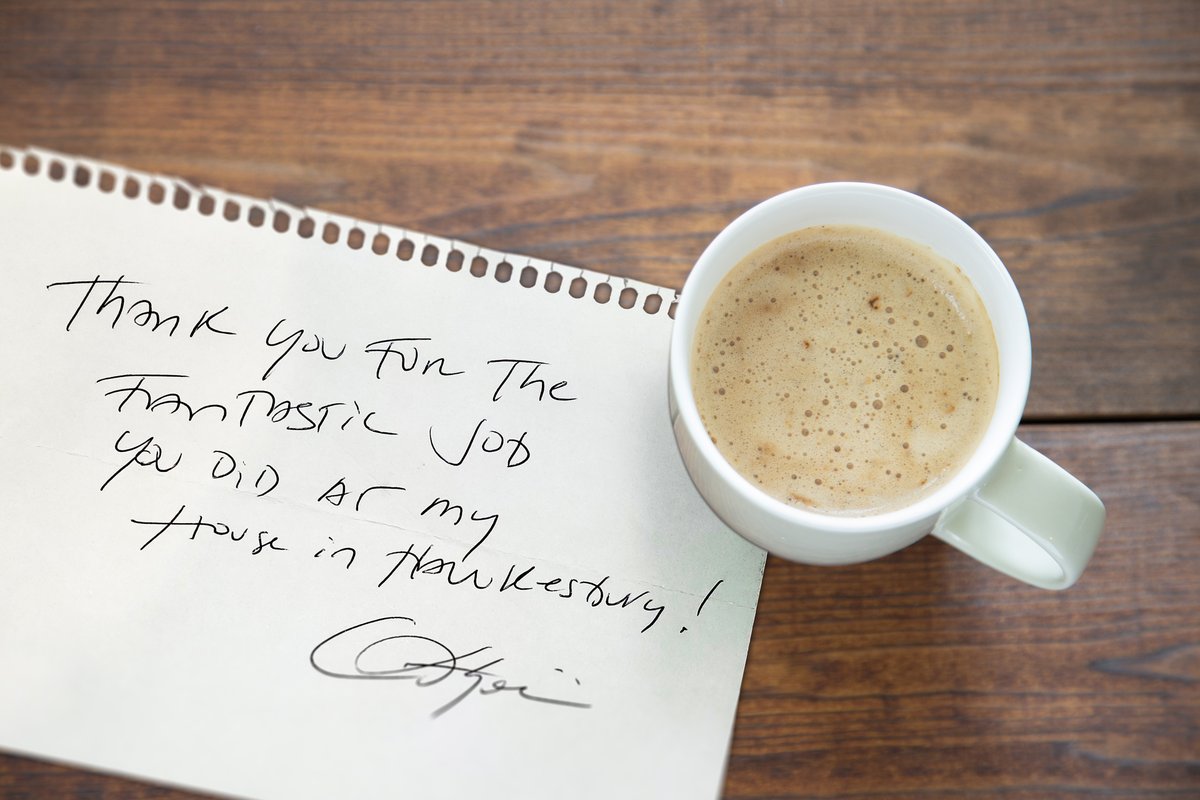 Thank you for the
Fantastic Job
you Did at my
House in Hawkesbury!